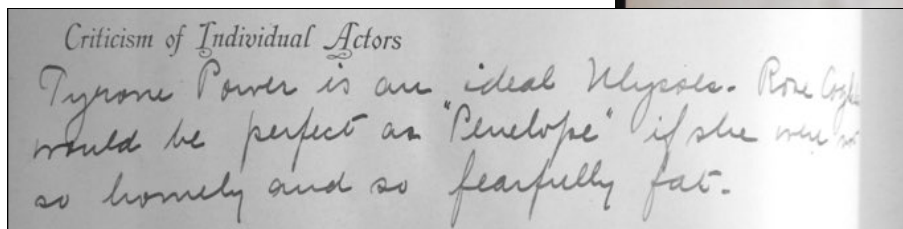 Criticism of Individual Actors
Tyrone Power is an ideal Ulysses. Rose
would be perfect as "Penelope" if she were not
so homely and so fearfully fat.